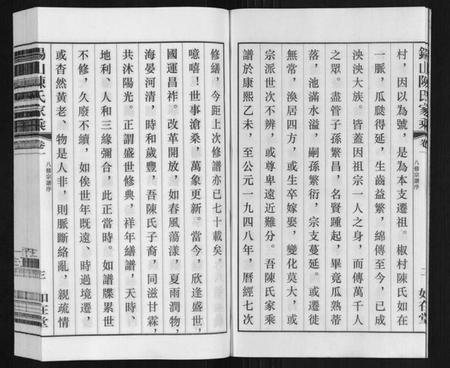 村，因以為號，是為本支遷祖。椒村陳氏如在
一脈，瓜瓞得延，生齒益繁，綿傳至今，已成
泱泱大族。皆蓋因祖宗一人之身，而傳萬千人
之眾。盡管子孫繁昌，名賢踵起，畢竟瓜熟蒂
落，池滿水溢，嗣孫繁衍，宗支蔓延。或遷徙
無常，渙居四方，或生卒嫁娶，變化莫大，或
宗派世次不辨，或尊卑遠近難分。吾陳氏家乘
譜於康熙乙未，至公元一九四八年，曆經七次
錫山陳氏家乘
卷一
八修宗譜序
二
如在堂
修繕，今距上次修譜亦已七十載矣。
噫嘻！世事滄桑，萬象更新。當今，欣逢盛世，
國運昌祚。改革開放，如春風蕩漾，夏雨潤物，
海晏河清，時和歲豐，吾陳氏子裔，同滋甘霖，
共沐陽光。正謂盛世修典，祥年繕譜，天時、
地利、人和三緣俱合，此正當時。如譜牒累世
不修，久廢不續，如俟世年既遠、時過境遷，
或杳然黃老、物是人非，則脈斷絡亂，親疏情
錫山陳氏家乘
卷一
八修宗譜序
三
如在堂